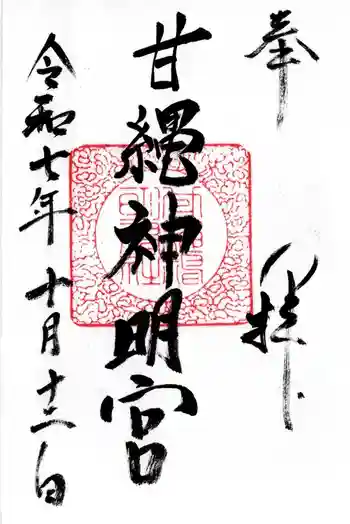 奉拝
甘縄神明宮
令和七年十月十二日